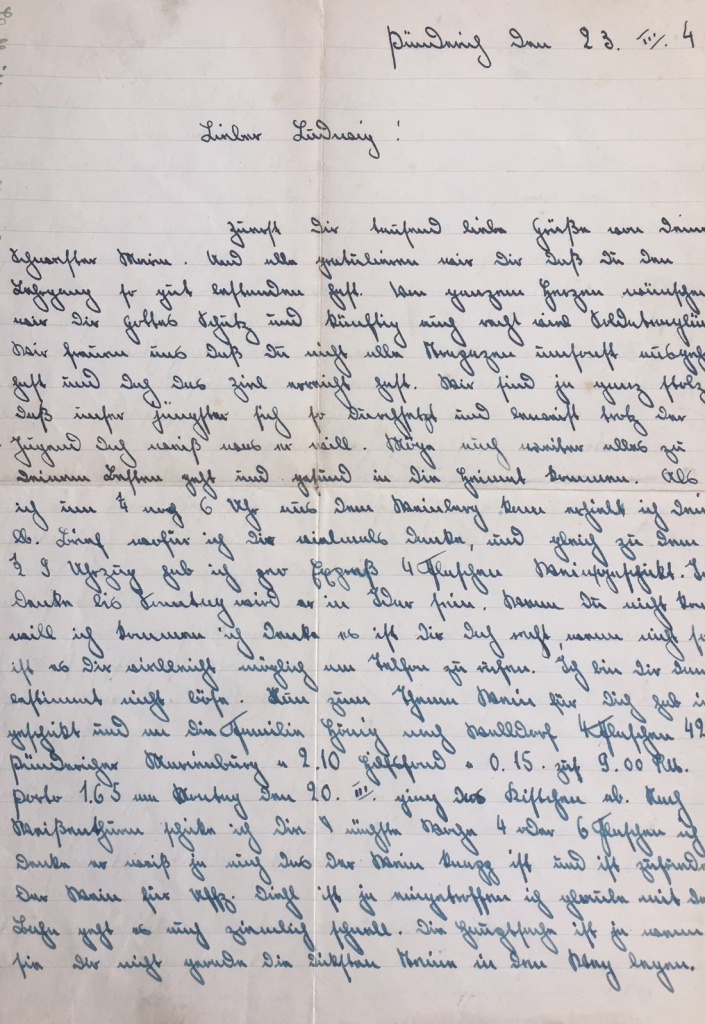 Pünderich den 23. III. 4
Lieber Ludwig!
Zuerst Dir tausend liebe Grüße von Deine
Schwester Maria. Und alle gratulieren wir Dir daß Du den
Lehrgang so gut bestanden hast. Von ganzem Herzen wünschen
wir Dir Gottes Schutz und künftig auch recht viel Soldatenglü
Wir freuen uns daß Du nicht alle umsonst
hast und doch das Ziel erreicht hast. Wir sind ja ganz stolz
daß unser jüngster sich so durchsetzt und beweist trotz der
Jugend doch weiß was er will. Möge auch weiter alles zu
Deinem Besten geht und gesund in die Heimat kommen. Als
ich um 4 nach 6 Uhr aus dem Weinberg kam erhielt ich Dein
lb. Brief wofür ich Dir vielmals danke, und gleich zu dem
½ 9 Uhrzug hab ich per Expreß 4 Flaschen Wein geschikt. Ic
denke bis Sonntag wird er in Idar sein. Wenn Du nicht kom
will ich kommen ich denke es ist Dir doch recht, wenn nicht so
ist es Dir vielleicht möglich am Telfon zu rufen. Ich bin Dir dan
bestimmt nicht böse. Nun zum Thema Wein für Dich hab i
geschikt und an die Familie Hönig nach Walldorf 4 Flaschen 42
Pündericher Marienburg a 2.10 a 0.15. zus 9.00 RM.
Porto 1.65 am Montag den 20. III. ging das Kistchen ab. Nach
Weißenthurm schike ich die nächste Woche 4 oder 6 Flaschen ich
denke er weiß ja auch das der Wein knapp ist und ist zufriede
Der Wein für Uffz. Diehl ist ja eingetroffen ich glaube mit de
Bahn geht es auch ziemlich schnell. Die Hauptsache ist ja wenn
sie Dir nicht gerade die diksten Steine in den Weg legen.